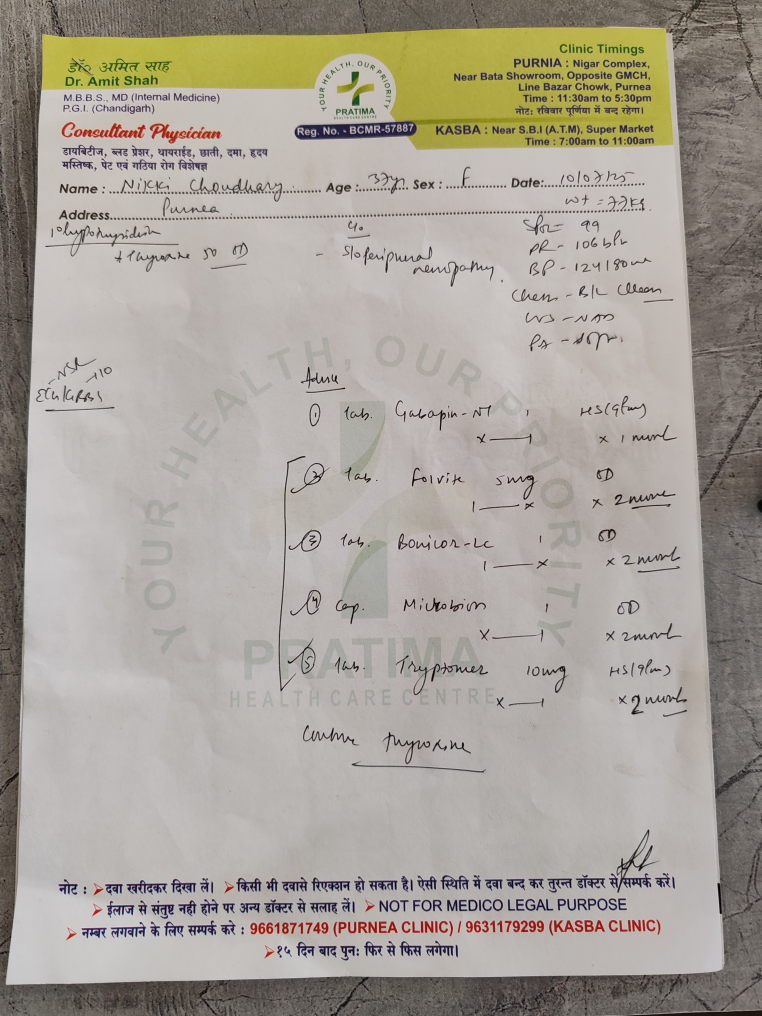 डॉ० अमित साह
Dr. Amit Shah
M.B.B.S., MD (Internal Medicine)
P.G.I. (Chandigarh)
Consultant Physician
डायबिटीज, ब्लड प्रेशर, थायराईड, छाती, दमा, हृदय
मस्तिष्क, पेट एवं गठिया रोग विशेषज्ञ
YOUR HEALTH, OUR PRIORITY
PRATIMA
HEALTH CARE CENTRE
Reg. No. - BCMR-57887
Clinic Timings
PURNIA : Nigar Complex,
Near Bata Showroom, Opposite GMCH,
Line Bazar Chowk, Purnea
Time : 11:30am to 5:30pm
नोट: रविवार पूर्णिया में बन्द रहेगा।
KASBA : Near S.B.I (A.T.M), Super Market
Time : 7:00am to 11:00am
Name : Nikki Choudhary Age : 37yr Sex : F Date: 10/07/25
Address Purnea wt = 77 kg
hypothyroidism
Thyroxine 50 OD
c/o
- S/o Peripheral neuropathy
SPO2 = 99
PR - 106 bpm
BP - 124/80
Chest - B/L Clear
CVS - NAD
PA - soft
NSR 110
ECG/GRBS
Advice
① Tab. Gabapin-NT 1 HS (9pm)
x — 1 x 1 month
② Tab. Folvite 5mg OD
1 — x x 2 month
③ Tab. Bonicor-LC 1 OD
1 — x x 2 month
④ Cap. Microbion 1 OD
x — 1 x 2 month
⑤ Tab. Tryptomer 10mg HS (9pm)
x — 1 x 2 month
Continue Thyroxine
YOUR HEALTH, OUR PRIORITY
PRATIMA
HEALTH CARE CENTRE
नोट : ➤दवा खरीदकर दिखा लें। ➤किसी भी दवासे रिएक्शन हो सकता है। ऐसी स्थिति में दवा बन्द कर तुरन्त डॉक्टर से सम्पर्क करें।
➤ईलाज से संतुष्ट नही होने पर अन्य डॉक्टर से सलाह लें। ➤ NOT FOR MEDICO LEGAL PURPOSE
➤ नम्बर लगवाने के लिए सम्पर्क करे : 9661871749 (PURNEA CLINIC) / 9631179299 (KASBA CLINIC)
➤१५ दिन बाद पुनः फिर से फिस लगेगा।